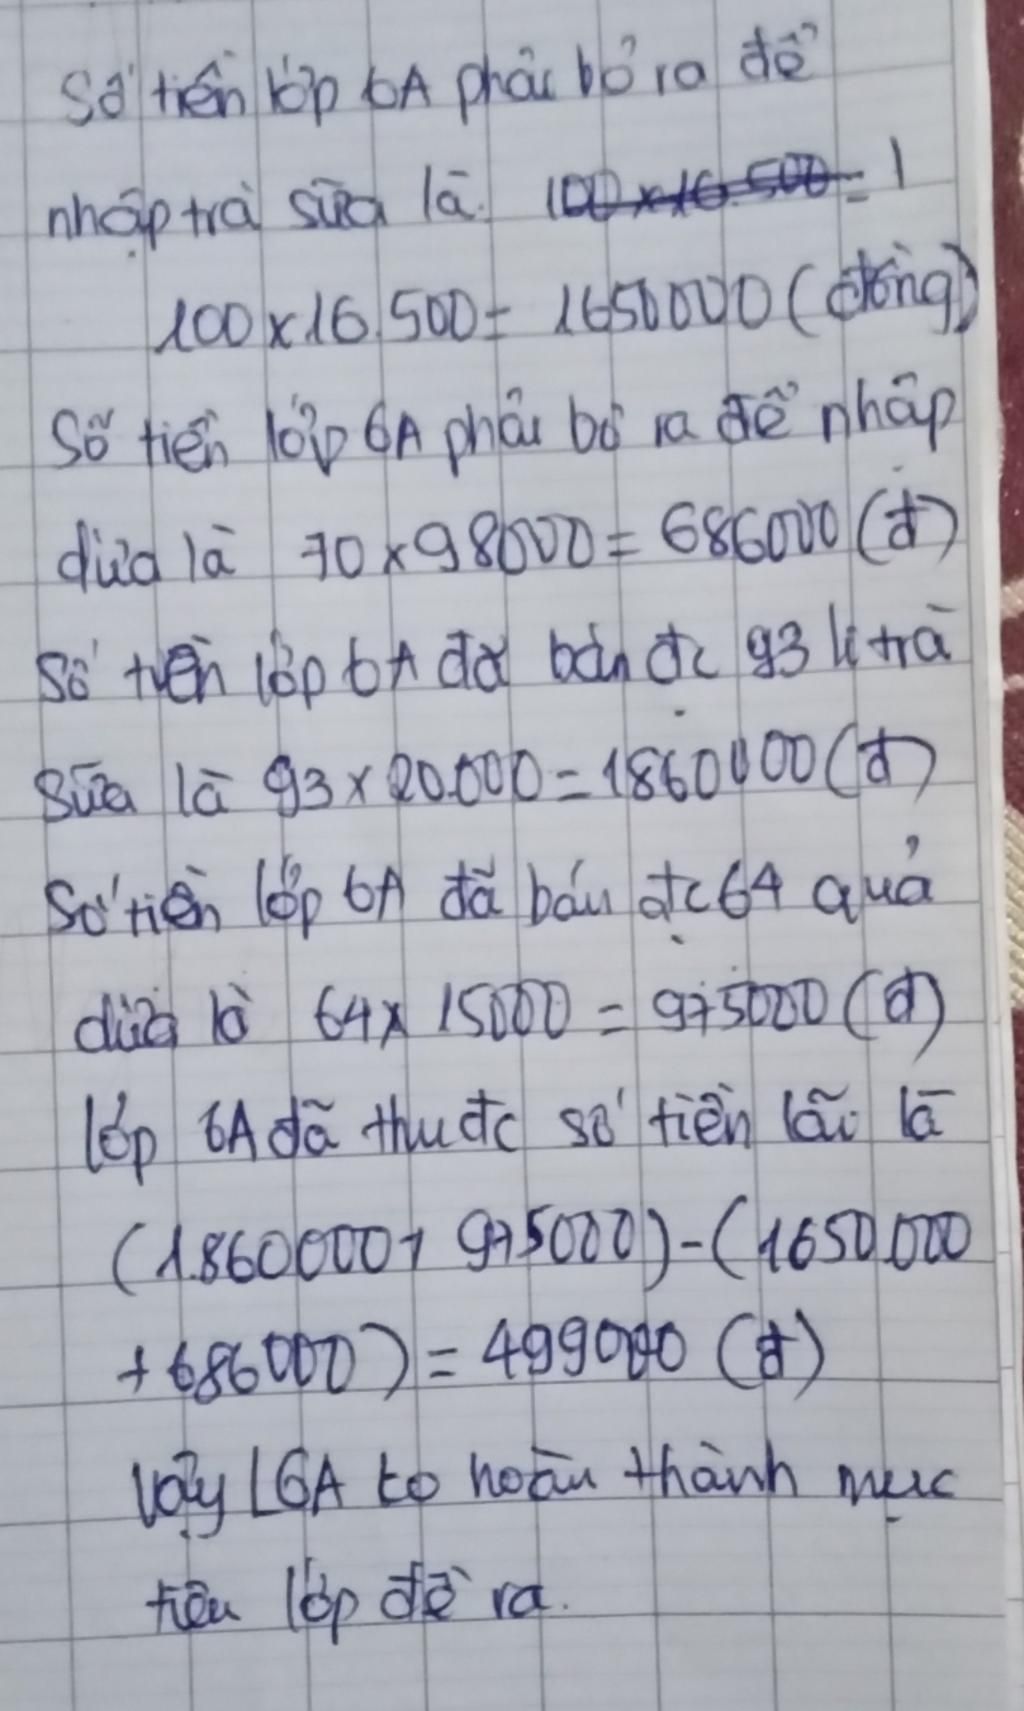 Số tiền lớp 6A phải bỏ ra để
nhập trà sữa là: 100x16.500=1
100x16.500= 1650000 (đồng)
Số tiền lớp 6A phải bỏ ra để nhập
dừa là 70x98000=686000 (đ)
Số tiền lớp 6A đã bán đc 93 li trà
sữa là 93x20.000=1860000 (đ)
Số tiền lớp 6A đã bán đc 64 quả
dừa là 64x15000=975000 (đ)
lớp 6A đã thu đc số tiền lãi là
(1.860000+975000)-(1650.000
+686000)=499000 (đ)
Vậy L6A ko hoàn thành mục
tiêu lớp đề ra.